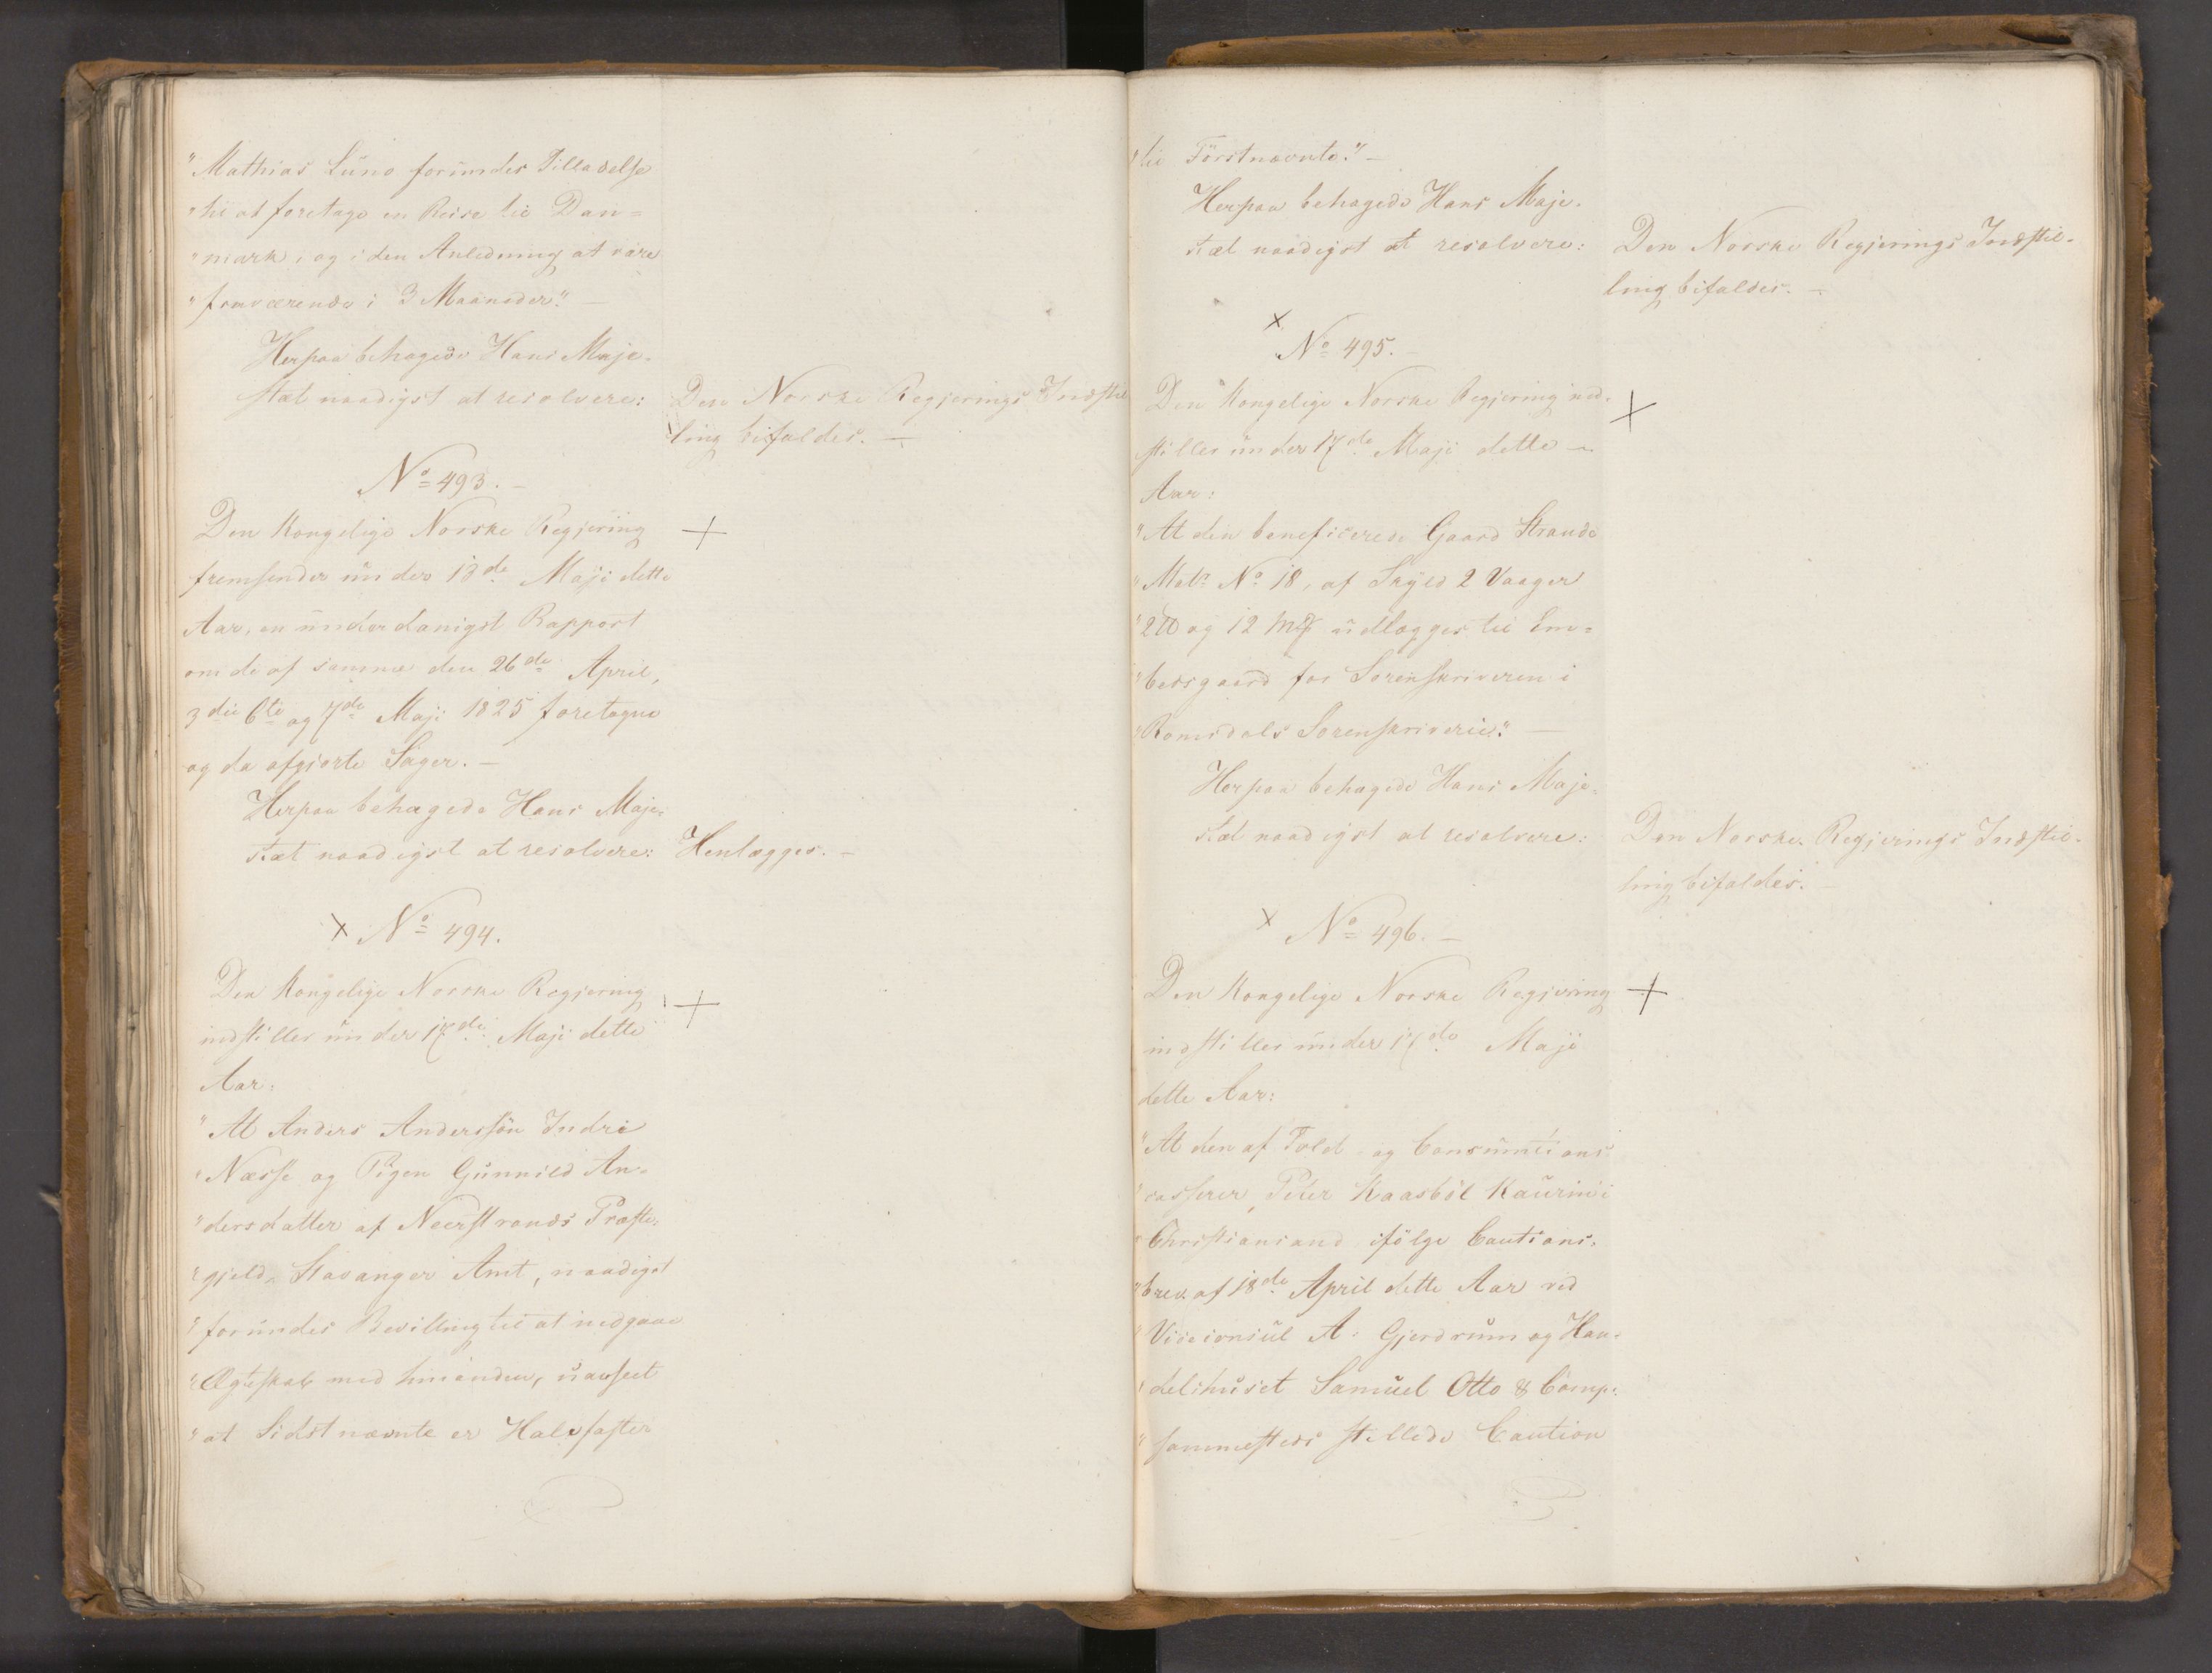 "Mathias Luno forundes Tilladelse
"til at foretage en Reise til Dan=
"mark, og i den Anledning at være
"fraværende i 3 Maaneder." —
Herpaa behagede Hans Maje-
stæt naadigst at resolvere:
Den Norske Regjerings Indstil
ling bifaldes. —
No 493. —
Den Kongelige Norske Regjering
fremsender under 13de Maji dette
Aar, en underdanigst Rapport
om de af samme den 26de April,
3die 6te og 7de Maji 1825 foretagne
og da afgjorte Sager. —
Herpaa behagede Hans Maje-
stæt naadigst at resolvere:
Henlægges. —
x No 494.
Den Kongelige Norske Regjering
indstiller under 17de Maji dette
Aar:
"At Anders Anderssön Indre
"Næsse og Pigen Gunnild An-
"dersdatter af Neerstrands Præste-
"gjeld, Stavanger Amt, naadigst
"forundes Bevilling til at indgaae
"Ægteskab med hinanden, uanseet
"at Sidstnævnte er Halvfaster
"til Förstnævnte." —
Herpaa behagede Hans Maje-
stæt naadigst at resolvere:
Den Norske Regjerings Indstil-
ling bifaldes. —
x No 495. —
Den Kongelige Norske Regjering ind-
stiller under 17de Maji dette —
Aar:
"At den beneficerede Gaard Strande
"Matr No 18, af Skyld 2 Vaager
"2 ℔ og 12 Mk udlægges til Em-
"bedsgaard for Sorenskriveren i
"Romsdals Sorenskriverie." —
Herpaa behagede Hans Maje-
stæt naadigst at resolvere:
Den Norske Regjerings Indstil-
ling bifaldes. —
x No 496. —
Den Kongelige Norske Regjering
indstiller under 17de Maji
dette Aar:
"At den af Told- og Consumtions
"casserer, Peter Kaasböl Kaurin i
"Christiansand ifölge Cautions-
"brev af 18de April dette Aar ved
"Viceconsul A. Gjerdrum og Han-
"delshuset Samuel Otto & Comp:
"sammesteds stillede Caution